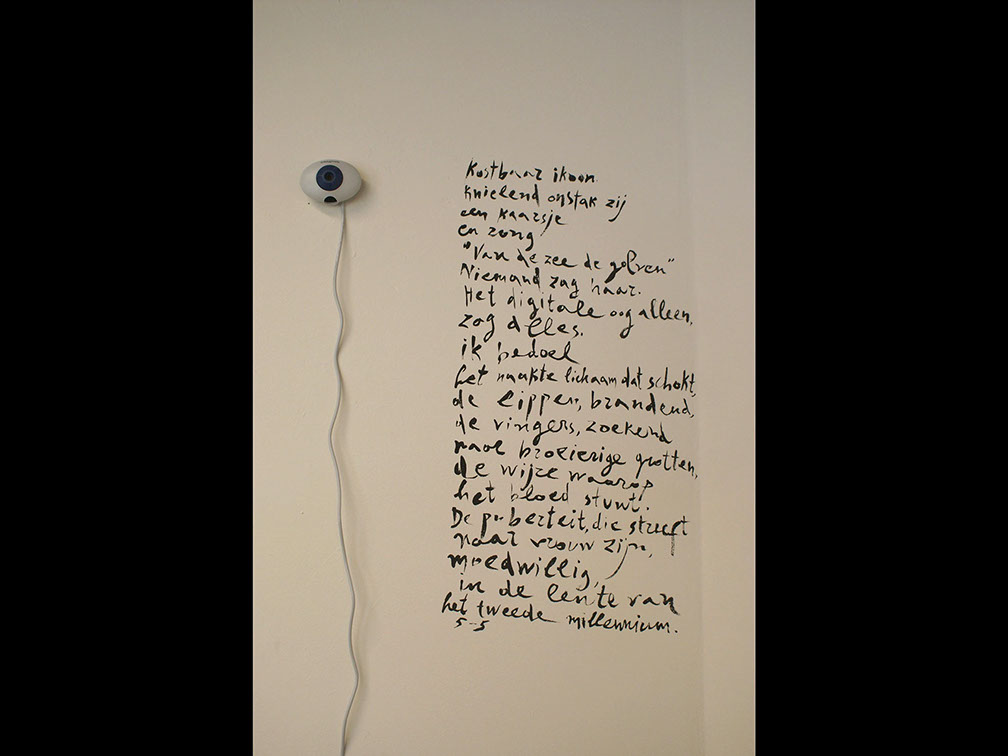 Kostbaar ikoon.
knielend onstak zij
een kaarsje
en zong
"Van de zee de golven"
Niemand zag haar.
Het digitale oog alleen,
zag alles.
ik bedoel
het naakte lichaam dat schokt,
de lippen, brandend,
de vingers, zoekend
naar broeierige grotten,
de wijze waarop
het bloed stuwt.
De puberteit, die streeft
naar vrouw zijn,
moedwillig,
in de lente van
het tweede millennium.
5-5